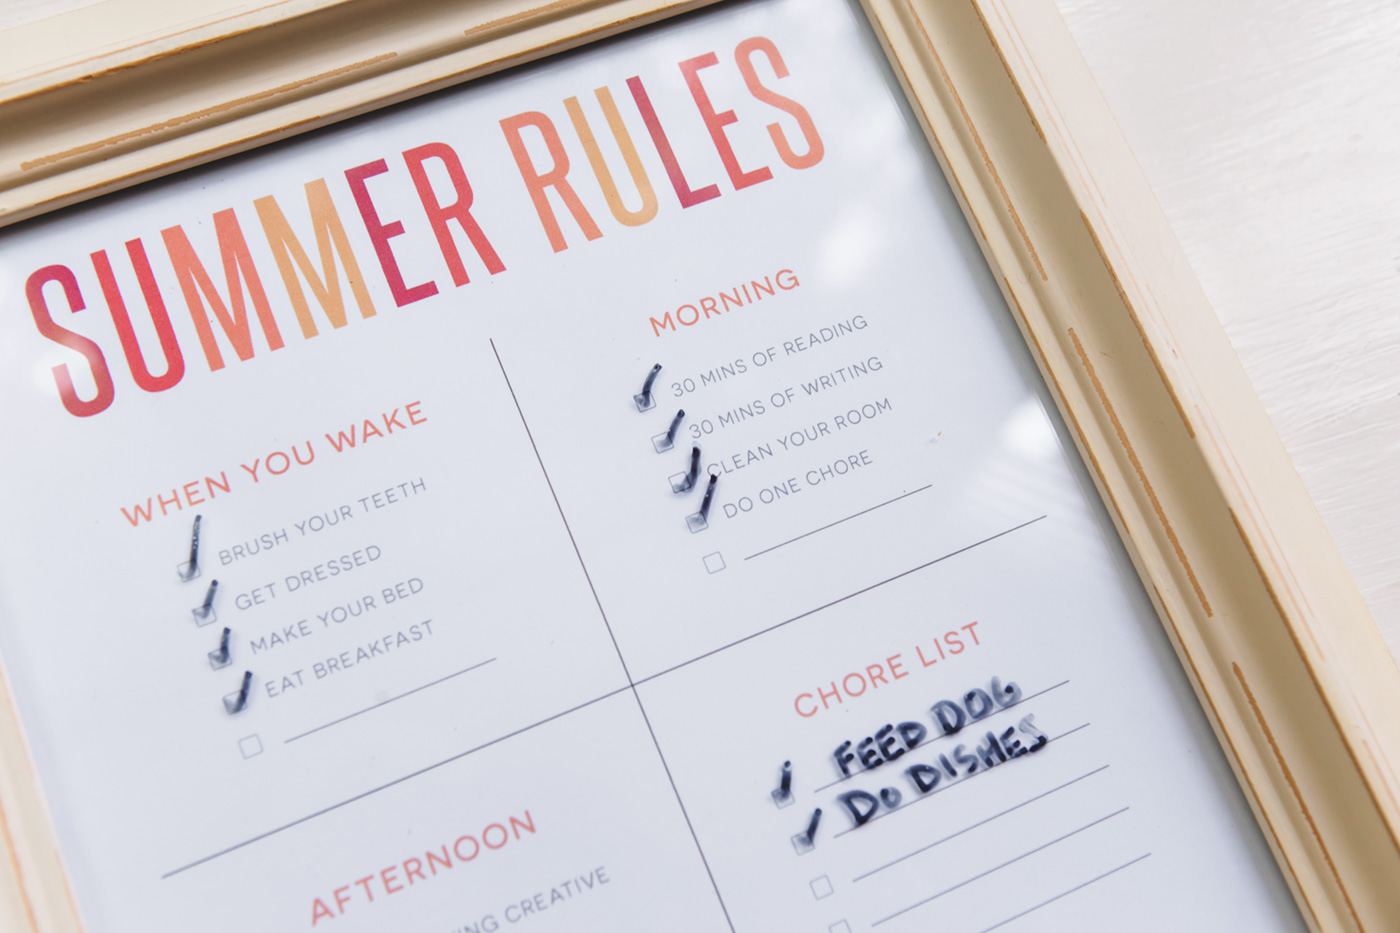 SUMMER RULES
WHEN YOU WAKE
BRUSH YOUR TEETH
GET DRESSED
MAKE YOUR BED
EAT BREAKFAST
MORNING
30 MINS OF READING
30 MINS OF WRITING
CLEAN YOUR ROOM
DO ONE CHORE
AFTERNOON
CREATIVE
CHORE LIST
FEED DOG
DO DISHES